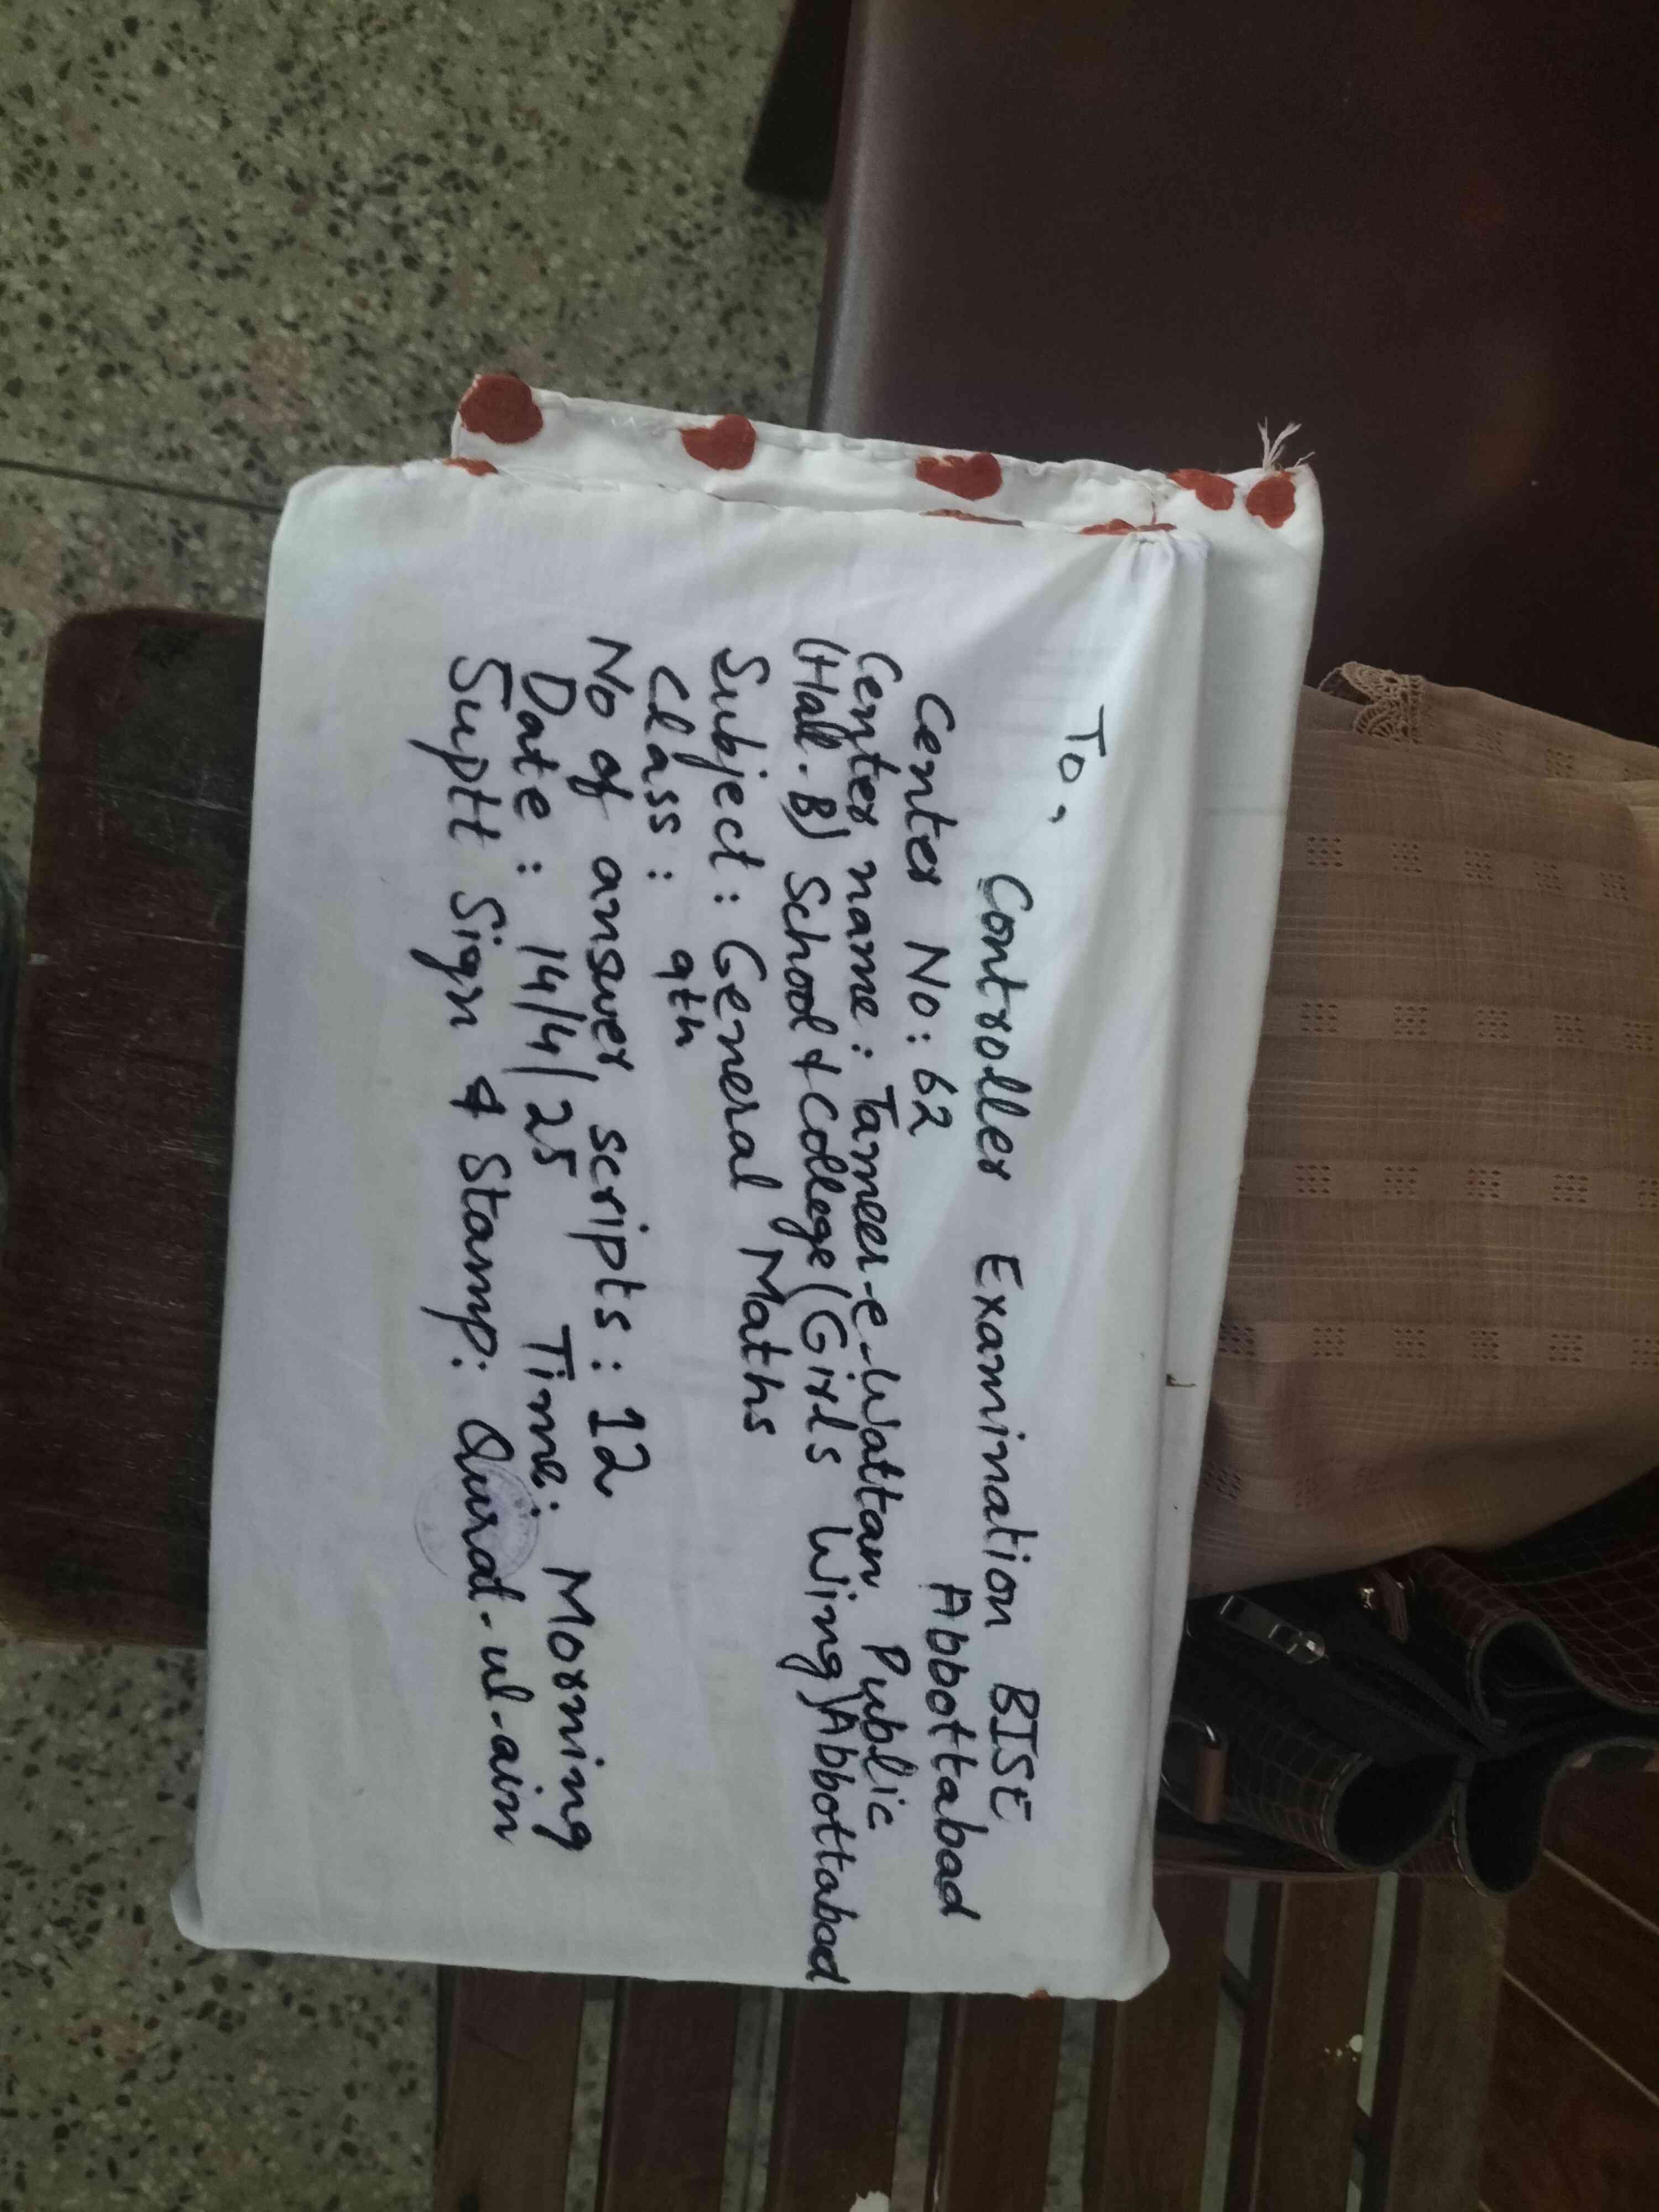 To,
Controller Examination BISE
Abbottabad
Center No: 62
Center name: Tameer-e-Wattan Public
(Hall-B) School & College (Girls Wing) Abbottabad
Subject: General Maths
Class: 9th
No of answer scripts: 12
Date: 14/4/25 Time: Morning
Suptt Sign & Stamp: Qurat-ul-ain